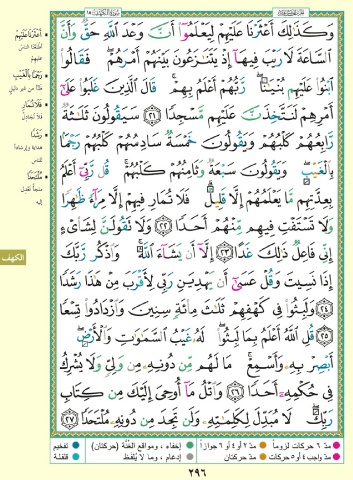 وَكَذَٰلِكَ أَعْثَرْنَا عَلَيْهِمْ لِيَعْلَمُوٓا۟ أَنَّ وَعْدَ ٱللَّهِ حَقٌّ وَأَنَّ
ٱلسَّاعَةَ لَا رَيْبَ فِيهَآ إِذْ يَتَنَٰزَعُونَ بَيْنَهُمْ أَمْرَهُمْ ۖ فَقَالُوا۟
ٱبْنُوا۟ عَلَيْهِم بُنْيَٰنًا ۖ رَّبُّهُمْ أَعْلَمُ بِهِمْ ۚ قَالَ ٱلَّذِينَ غَلَبُوا۟ عَلَىٰٓ
أَمْرِهِمْ لَنَتَّخِذَنَّ عَلَيْهِم مَّسْجِدًا ٢١ سَيَقُولُونَ ثَلَٰثَةٌ
رَّابِعُهُمْ كَلْبُهُمْ وَيَقُولُونَ خَمْسَةٌ سَادِسُهُمْ كَلْبُهُمْ رَجْمًۢا
بِٱلْغَيْبِ ۖ وَيَقُولُونَ سَبْعَةٌ وَثَامِنُهُمْ كَلْبُهُمْ ۚ قُل رَّبِّىٓ أَعْلَمُ
بِعِدَّتِهِم مَّا يَعْلَمُهُمْ إِلَّا قَلِيلٌ ۗ فَلَا تُمَارِ فِيهِمْ إِلَّا مِرَآءً ظَٰهِرًا
وَلَا تَسْتَفْتِ فِيهِم مِّنْهُمْ أَحَدًا ٢٢ وَلَا تَقُولَنَّ لِشَا۟ىْءٍ
إِنِّى فَاعِلٌ ذَٰلِكَ غَدًا ٢٣ إِلَّآ أَن يَشَآءَ ٱللَّهُ ۚ وَٱذْكُر رَّبَّكَ
إِذَا نَسِيتَ وَقُلْ عَسَىٰٓ أَن يَهْدِيَنِ رَبِّى لِأَقْرَبَ مِنْ هَٰذَا رَشَدًا
٢٤ وَلَبِثُوا۟ فِى كَهْفِهِمْ ثَلَٰثَ مِا۟ئَةٍ سِنِينَ وَٱزْدَادُوا۟ تِسْعًا
٢٥ قُلِ ٱللَّهُ أَعْلَمُ بِمَا لَبِثُوا۟ ۖ لَهُۥ غَيْبُ ٱلسَّمَٰوَٰتِ وَٱلْأَرْضِ ۖ
أَبْصِرْ بِهِۦ وَأَسْمِعْ ۚ مَا لَهُم مِّن دُونِهِۦ مِن وَلِىٍّ وَلَا يُشْرِكُ
فِى حُكْمِهِۦٓ أَحَدًا ٢٦ وَٱتْلُ مَآ أُوحِىَ إِلَيْكَ مِن كِتَابِ
رَبِّكَ ۖ لَا مُبَدِّلَ لِكَلِمَٰتِهِۦ وَلَن تَجِدَ مِن دُونِهِۦ مُلْتَحَدًا ٢٧
أعثرنا عليهم
رجمًا بالغيب
فلا تمار
رشدًا
ملتحدًا
الكهف
مدّ ٦ حركات لزوماً
مدّ ٢ أو ٤ أو ٦ جوازاً
مدّ واجب ٤ أو ٥ حركات
مدّ حركتان
إخفاء، ومواقع الغنّة (حركتان)
إدغام، وما لا يُلفظ
تفخيم
قلقلة
٢٩٦